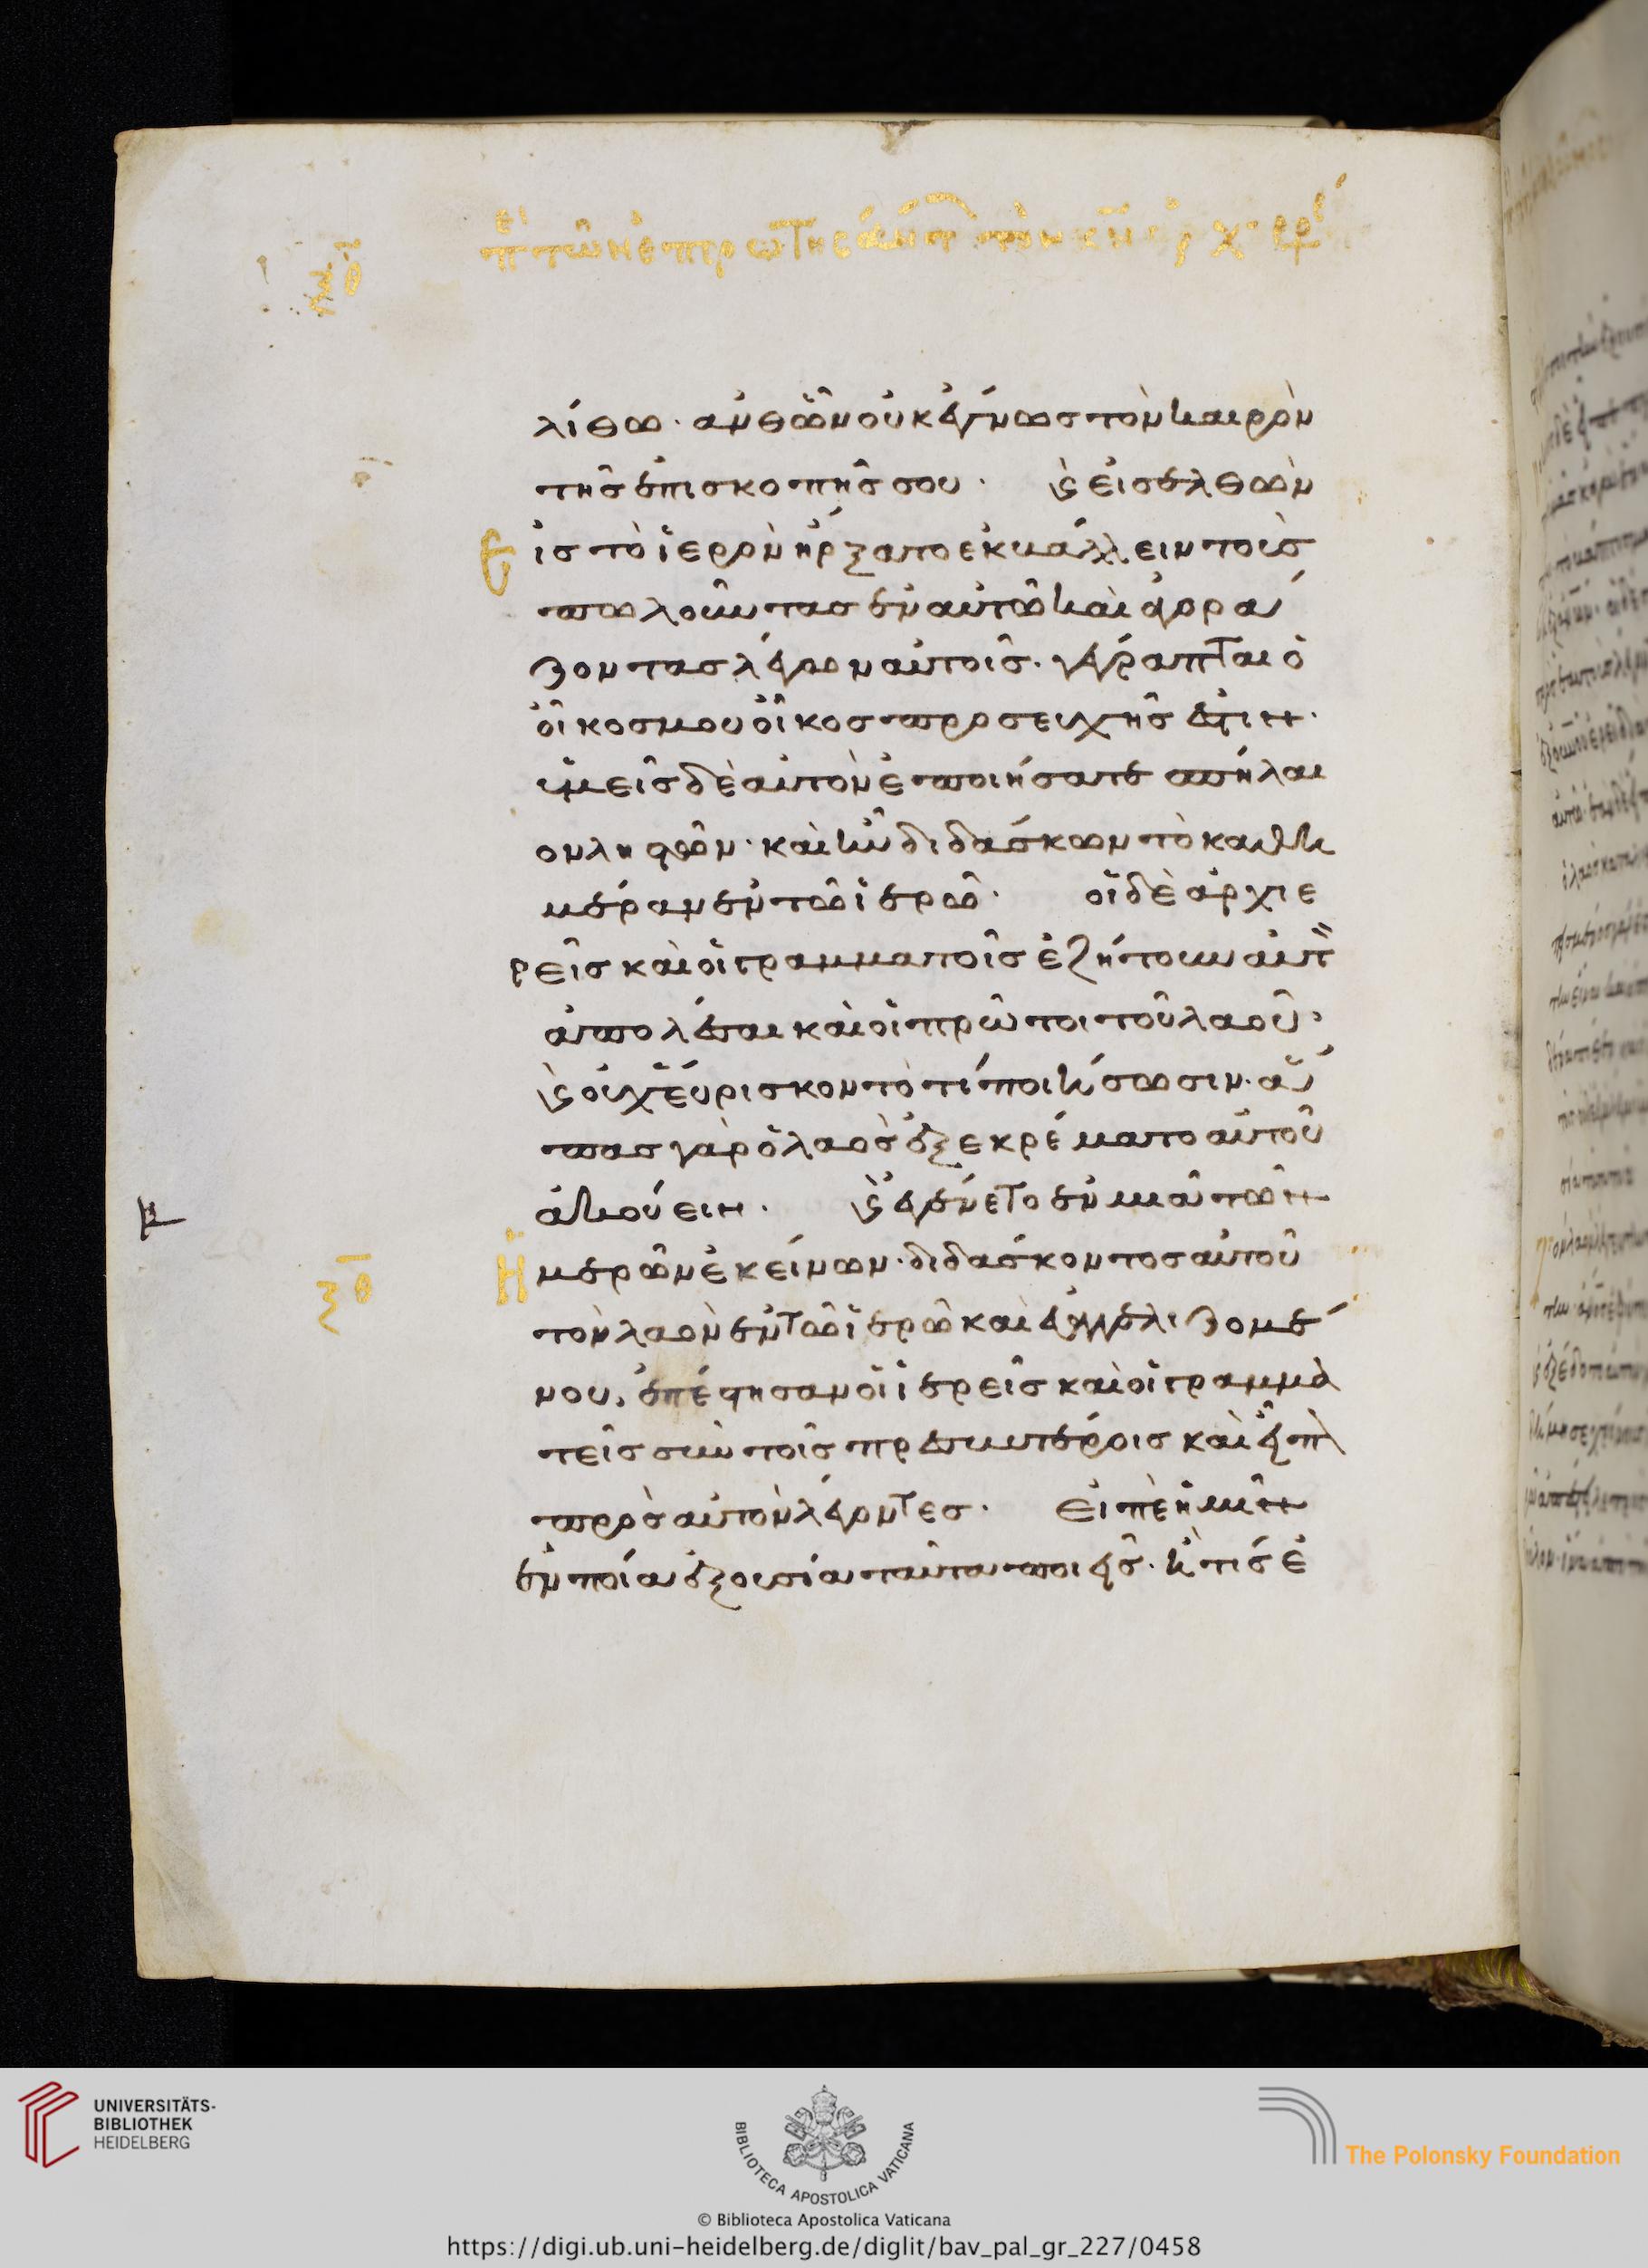 λίθω· ἀνθῶν οὐκ ἔγνως τὸν καιρὸν
τῆς ἐπισκοπῆς σου· ϗ εἰσελθὼν
εἰς τὸ ἱερὸν ἤρξατο ἐκβάλλειν τοὺς
πωλοῦντας ἐν αὐτῶ καὶ ἀγορά
ζοντας λέγων αὐτοῖς· γέγραπται ὁ
οἶκος μου οἶκος προσευχῆς ἐστιν·
ὑμεῖς δὲ αὐτὸν ἐποιήσατε σπήλαι
ον ληστῶν· καὶ ἦν διδάσκων τὸ καθ ἡ
μέραν ἐν τῶ ἱερῶ· οἱ δὲ ἀρχιε
ρεῖς καὶ οἱ γραμματεῖς ἐζήτουν αὐτ
ἀπολέσαι καὶ οἱ πρῶτοι τοῦ λαοῦ·
ϗ οὐχ εὕρισκον τὸ τί ποιήσωσιν· ἅ
πας γὰρ ὁ λαὸς ἐξεκρέματο αὐτοῦ
ἀκούειν· ϗ ἐγένετο ἐν μιᾶ τῶν
ἡμερῶν ἐκείνων· διδάσκοντος αὐτοῦ
τὸν λαὸν ἐν τῶ ἱερῶ καὶ εὐαγγελιζομέ
νου, ἐπέστησαν οἱ ἱερεῖς καὶ οἱ γραμμα
τεῖς σὺν τοῖς πρεσβυτέροις καὶ εἶπ
πρὸς αὐτὸν λέγοντες· εἰπὲ ἡμῖν
ἐν ποία ἐξουσία ταῦτα ποιεῖς· ἢ τίς ἐ
UNIVERSITÄTS-
BIBLIOTHEK
HEIDELBERG
BIBLIOTECA APOSTOLICA VATICANA
The Polonsky Foundation
© Biblioteca Apostolica Vaticana
https://digi.ub.uni-heidelberg.de/diglit/bav_pal_gr_227/0458